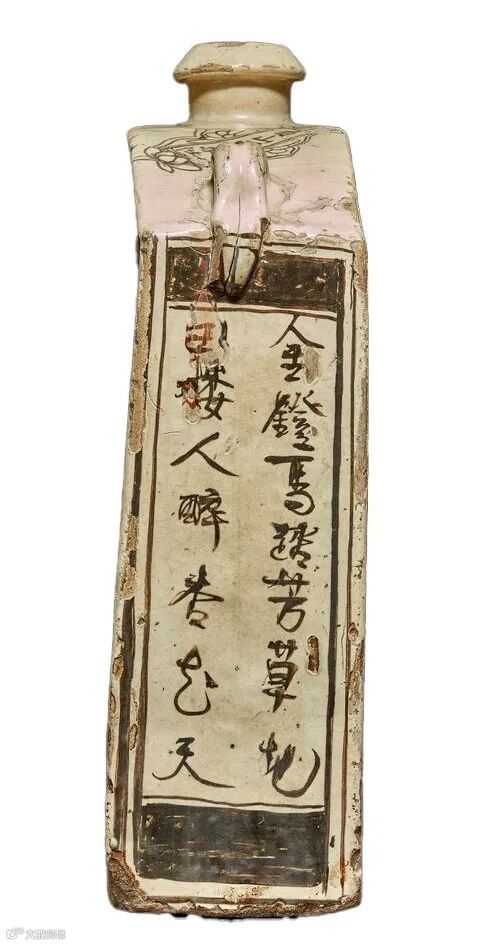 金鐙馬踏芳草地
玉樓人醉杏花天